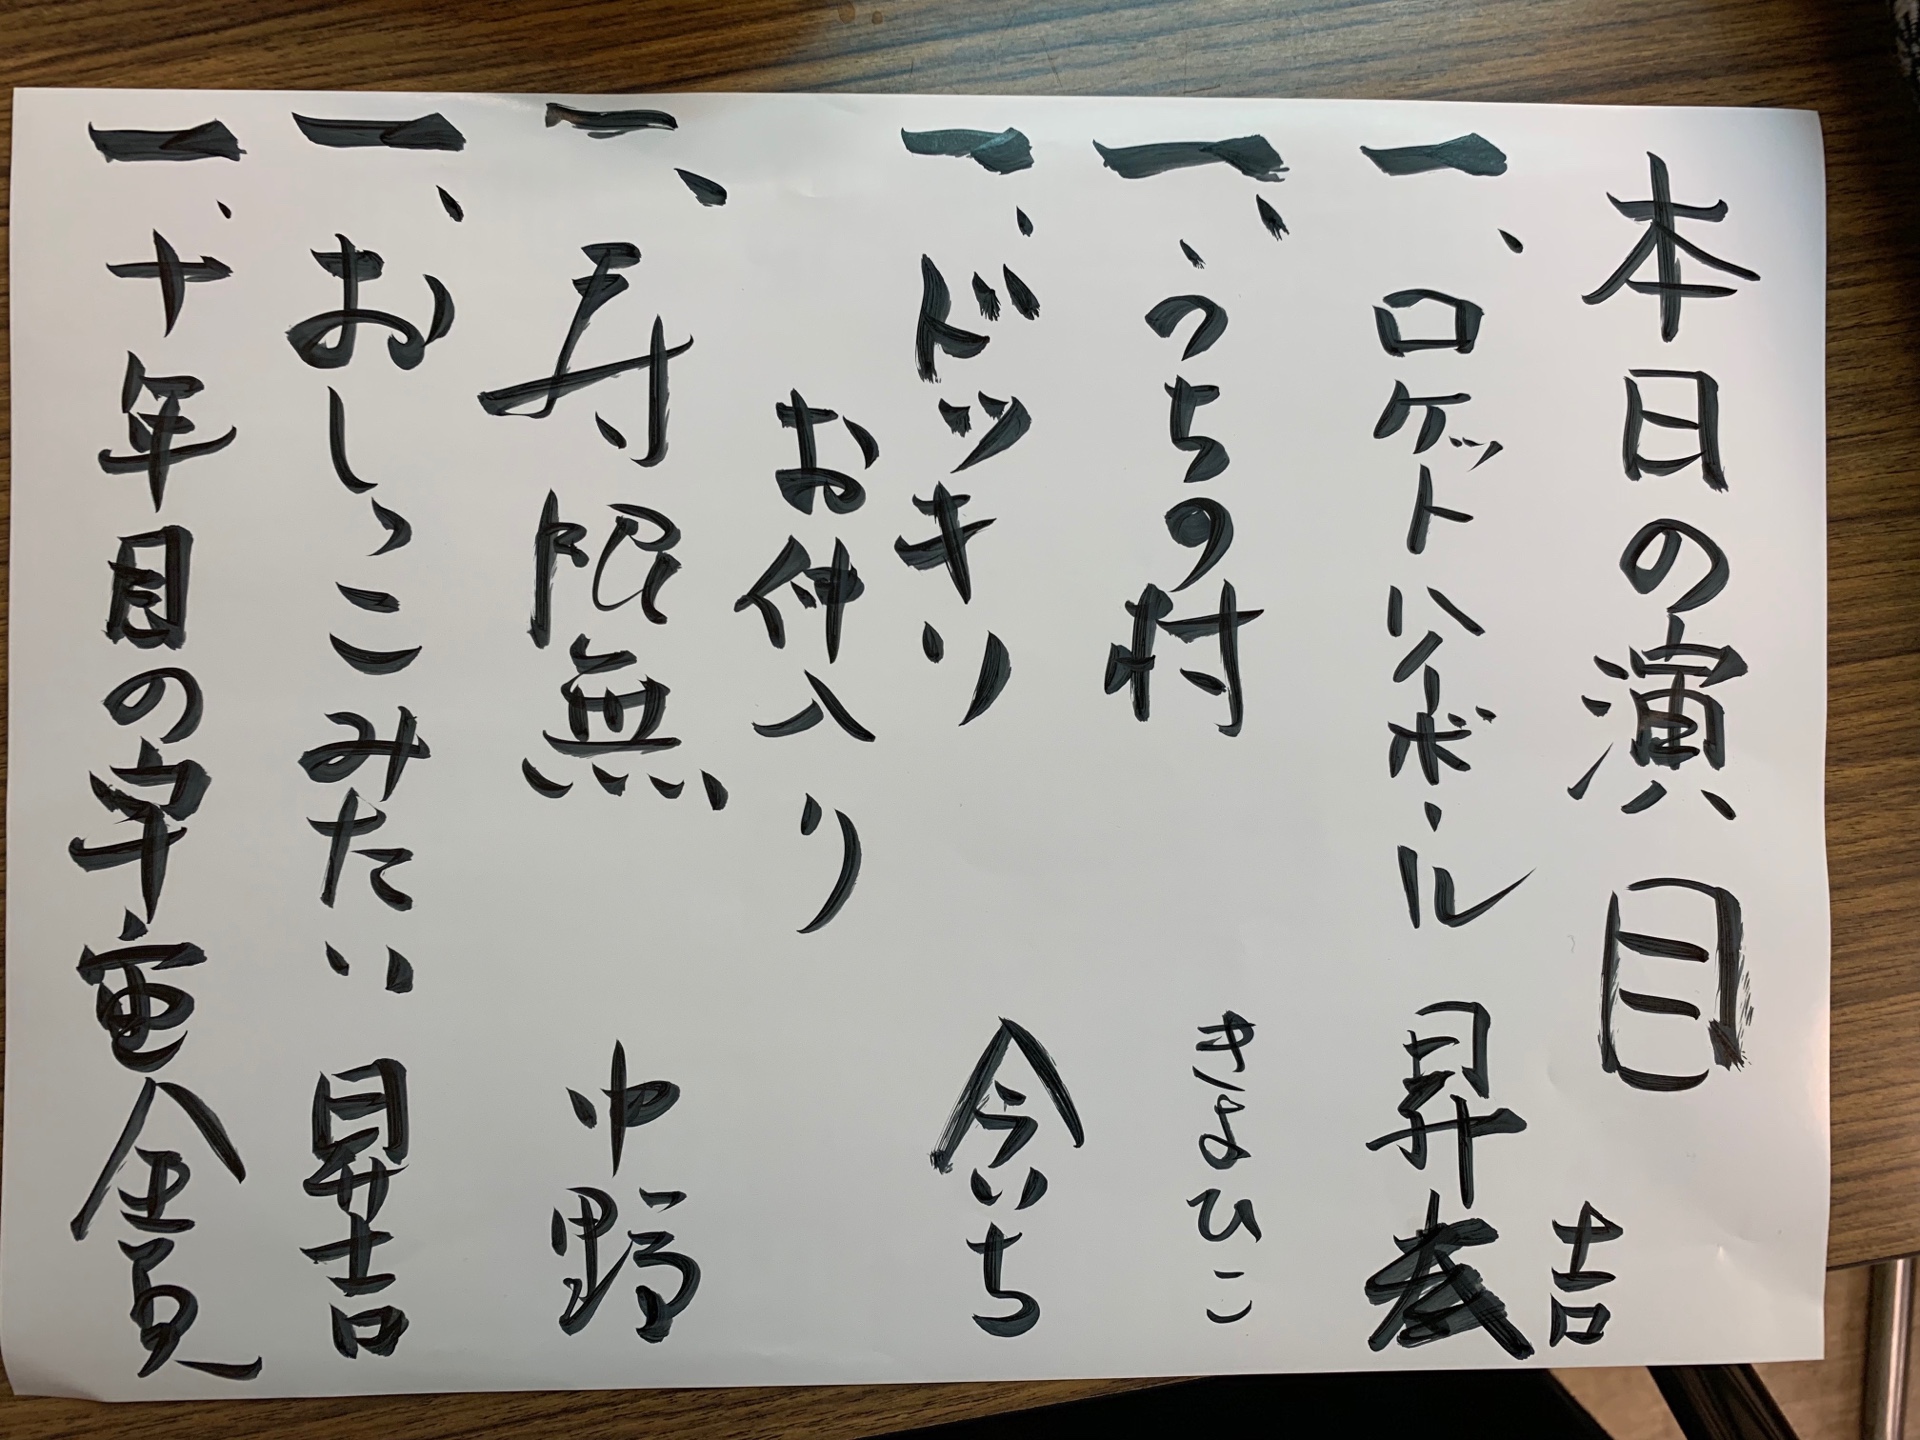 本日の演目
一、ロケットハイボール 昇 吉
一、うちの村 きよひこ
一、ドッキリ 今いち
お仲入り
一、寿限無 中野
一、おしっこみたい 昇吉
一、十年目の宇宙 全員